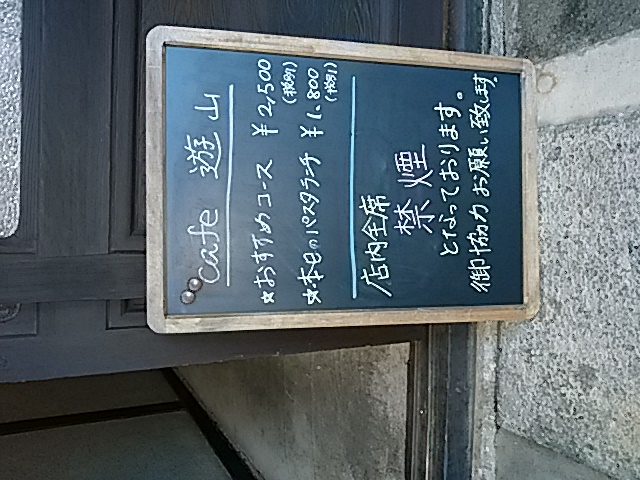 cafe 遊山
★おすすめコース ¥2,500
(税別)
★本日のパスタランチ ¥1,800
(税別)
店内全席
禁煙
となっております。
御協力お願い致します。